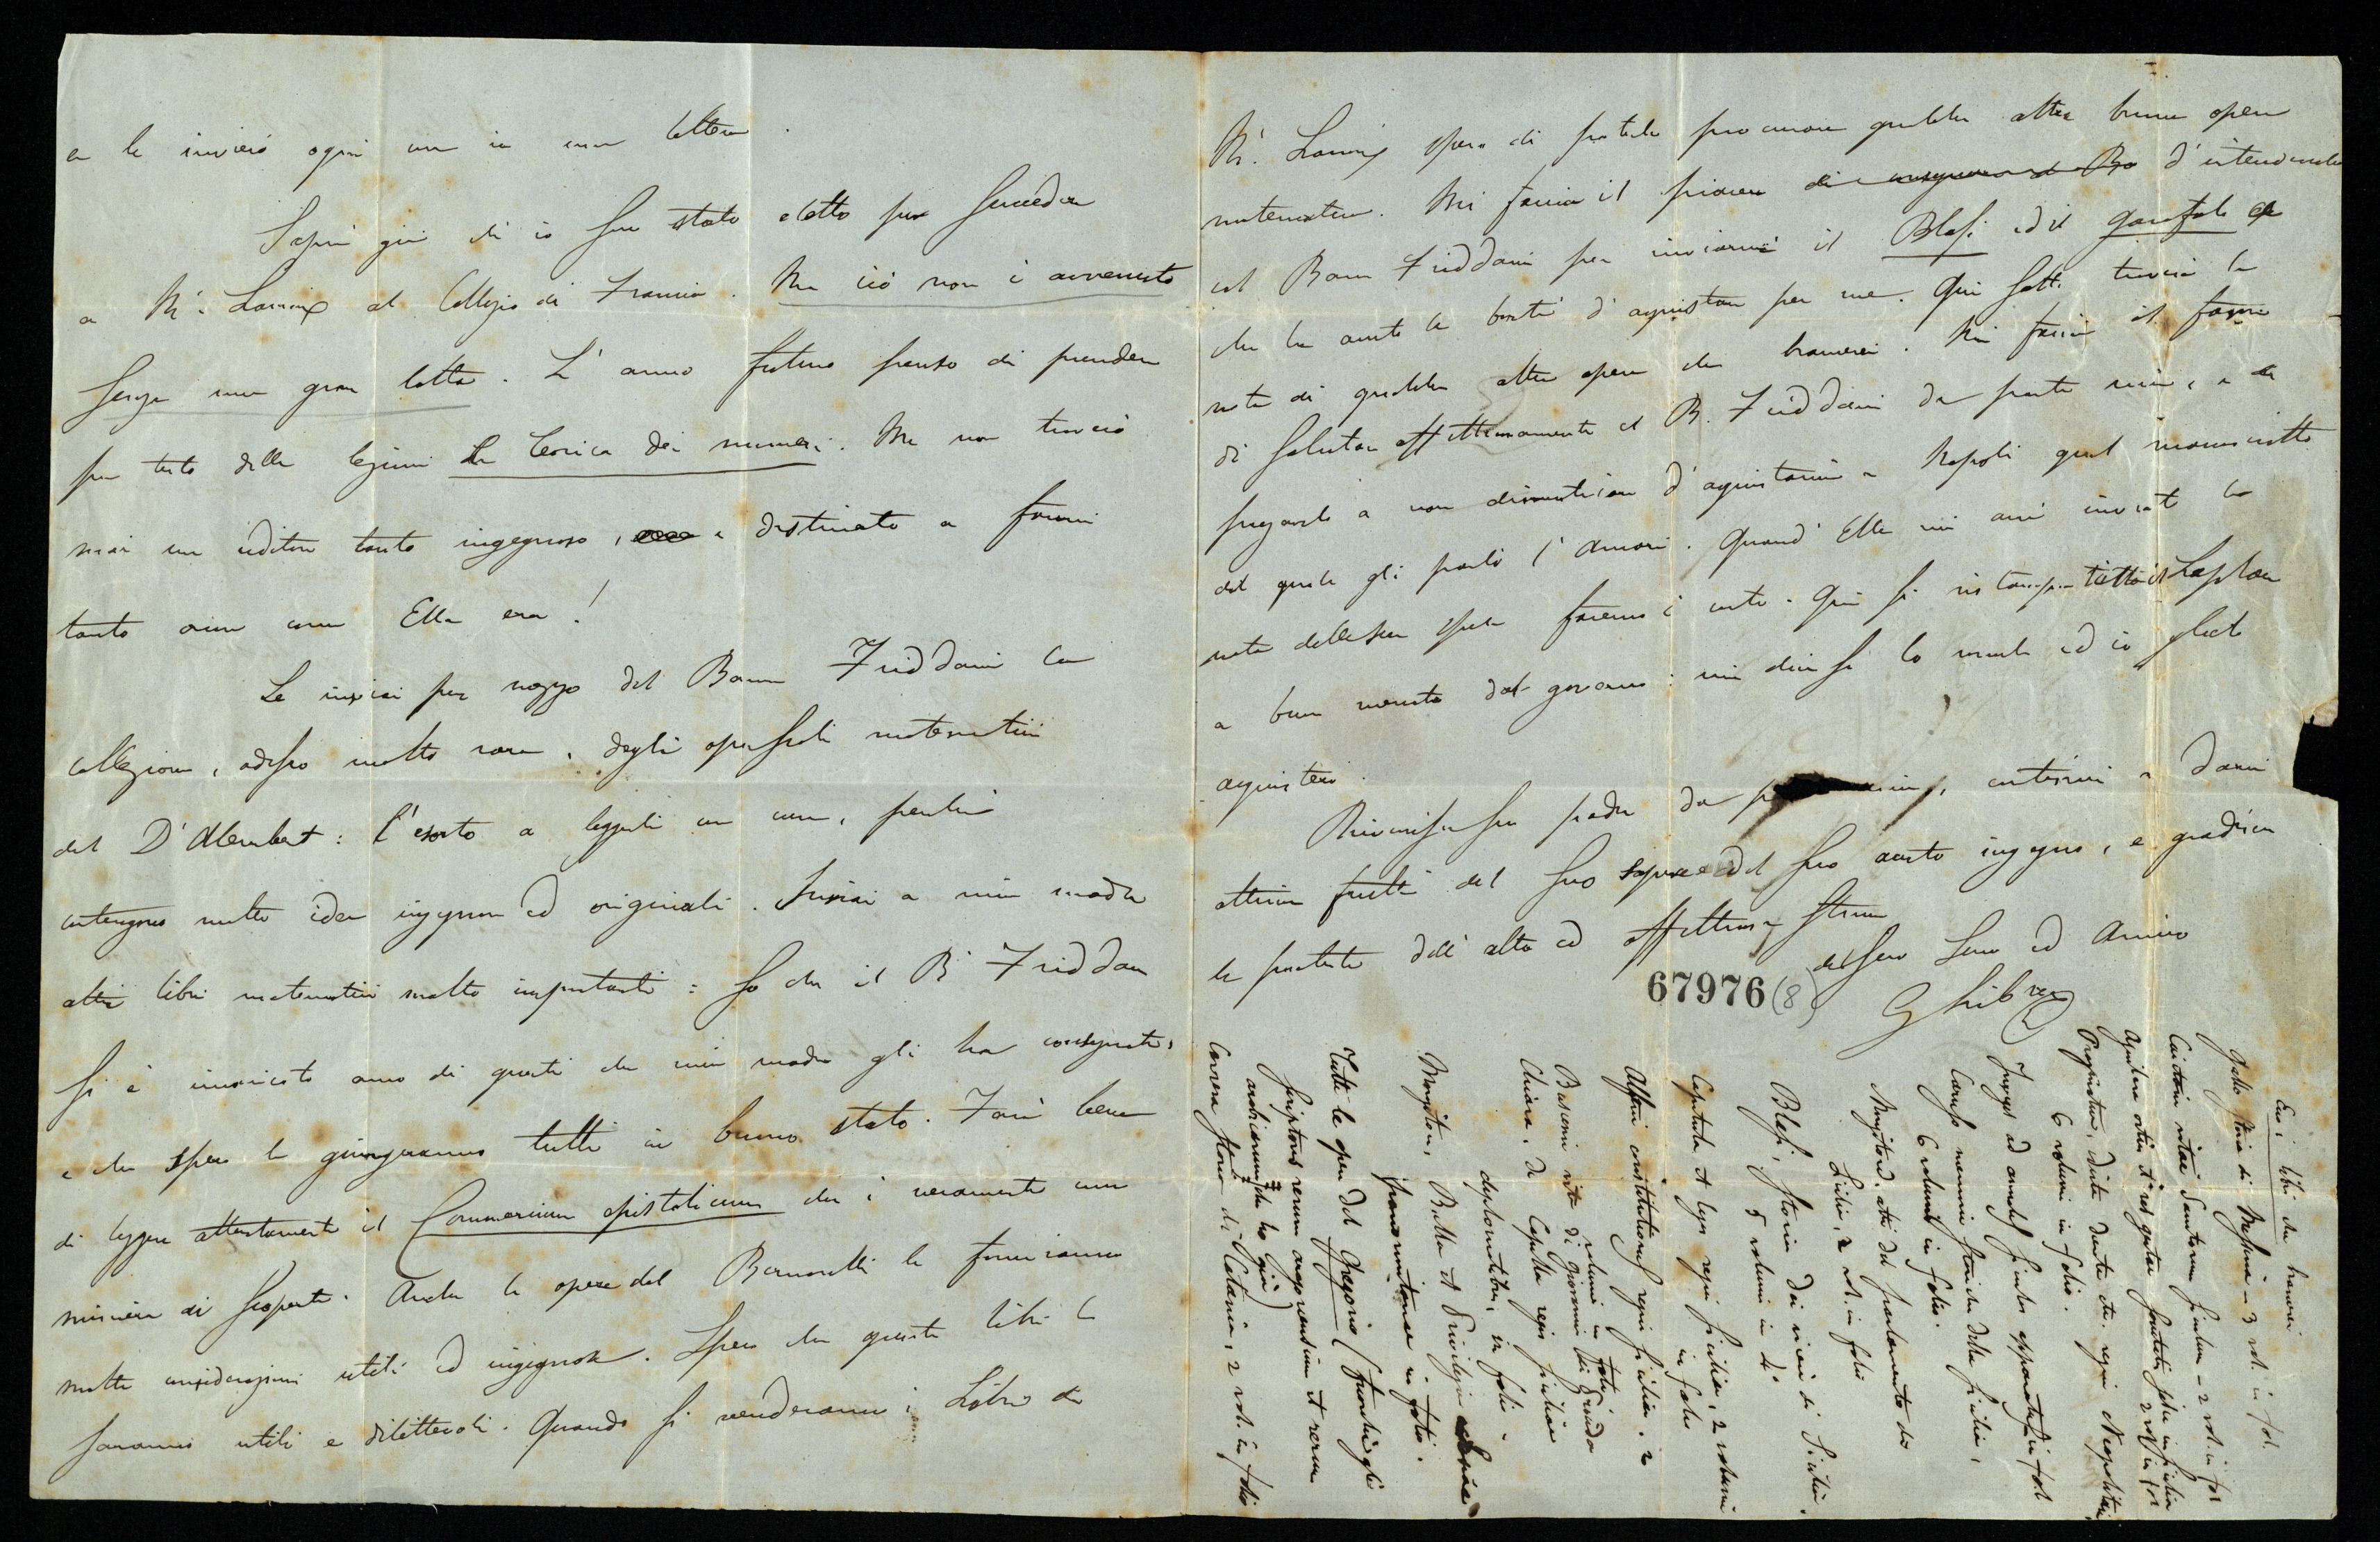 e le invierò ogni cosa in una lettera.
Saprà già ch'io sono stato eletto per succedere
a Mr. Lacroix al Collegio di Francia. Ma ciò non è avvenuto
senza una gran lotta. L'anno futuro penso di prendere
per testo delle lezioni la teorica dei numeri. Ma non troverò
mai un uditore tanto ingegnoso, e destinato a farmi
tanto onore come Ella era!
Le inviai per mezzo del Baron Friddani la
collezione, adesso molto rara, degli opuscoli matematici
del D'Alembert: l'esorto a leggerli con cura, perchè
contengono molte idee ingegnose ed originali. Inviai a mia madre
altri libri matematici molto importanti: so che il Bn Friddani
si è incaricato anco di questi che mia madre gli ha consegnati,
e che spero le giungeranno tutti in buono stato. Farà bene
di leggere attentamente il Commercium epistolicum che è veramente una
miniera di scoperte. Anche le opere del Bernoulli le forniranno
molte considerazioni utili ed ingegnose. Spero che questi libri le
saranno utili e dilettevoli. Quando si venderanno i libri di
Mr. Lacroix spero di poterle procurare qualche altra buona opera
matematica. Mi faccia il piacere d'intendersela
col Baron Friddani per inviarmi il Blasi ed il Garofalo
che ha avuto la bontà d'acquistare per me. Qui sotto troverà la
nota di qualche altra opera che bramerei. Mi faccia il favore
di salutare affettuosamente il B. Friddani da parte mia, e di
pregarlo a non dimenticare d'acquistarmi a Napoli quel manoscritto
del quale gli parlò l'Amari. Quand'Ella mi avrà inviato la
nota delle sue spese faremo i conti. Qui si ristampa tutto il Laplace
a buon mercato dal governo: mi dica se lo vuole ed io glielo
acquisterò.
Riverisca suo padre da parte mia, continui a darmi
ottimi frutti del suo sapere e del suo acuto ingegno, e gradisca
le proteste dell'alta ed affettuosa stima
del suo Servo ed Amico
G Libri
67976 (8)
Ecco i libri che bramerei
Gallo, Storia di Messina – 3 vol. in fol.
Caietani vitae Sanctorum Siculorum – 2 vol. in fol
Aguilera ortus et res gestae societatis jesu in Sicilia 2 vol in fol
Pragmaticae, edicta, decreta etc. regni Neapolitani,
6 volumi in folio.
Inveges ad annales siculos apparatus in fol
Caruso memorie storiche della Sicilia,
6 volumi in folio.
Mongitore, atti del parlamento di
Sicilia, 2 vol. in folio
Blasi, storia dei vicerè di Sicilia.
5 volumi in 4°
Capitula et leges regni Siciliae, 2 volumi
in folio
Alferi constitutiones regni Siciliae, 2
volumi in folio
Buscemi vita di Giovanni di Procida
Chiara, de Capella regis Siciliae
diplomatibus, in folio.
Mongitore, Bullae et Privilegia
panormitanae in folio.
Tutte le opere del Gregorio (fuorchè gli
Scriptores rerum aragonensium et rerum
arabicarum che ho già)
Carrera storia di Catania, 2 vol. in folio